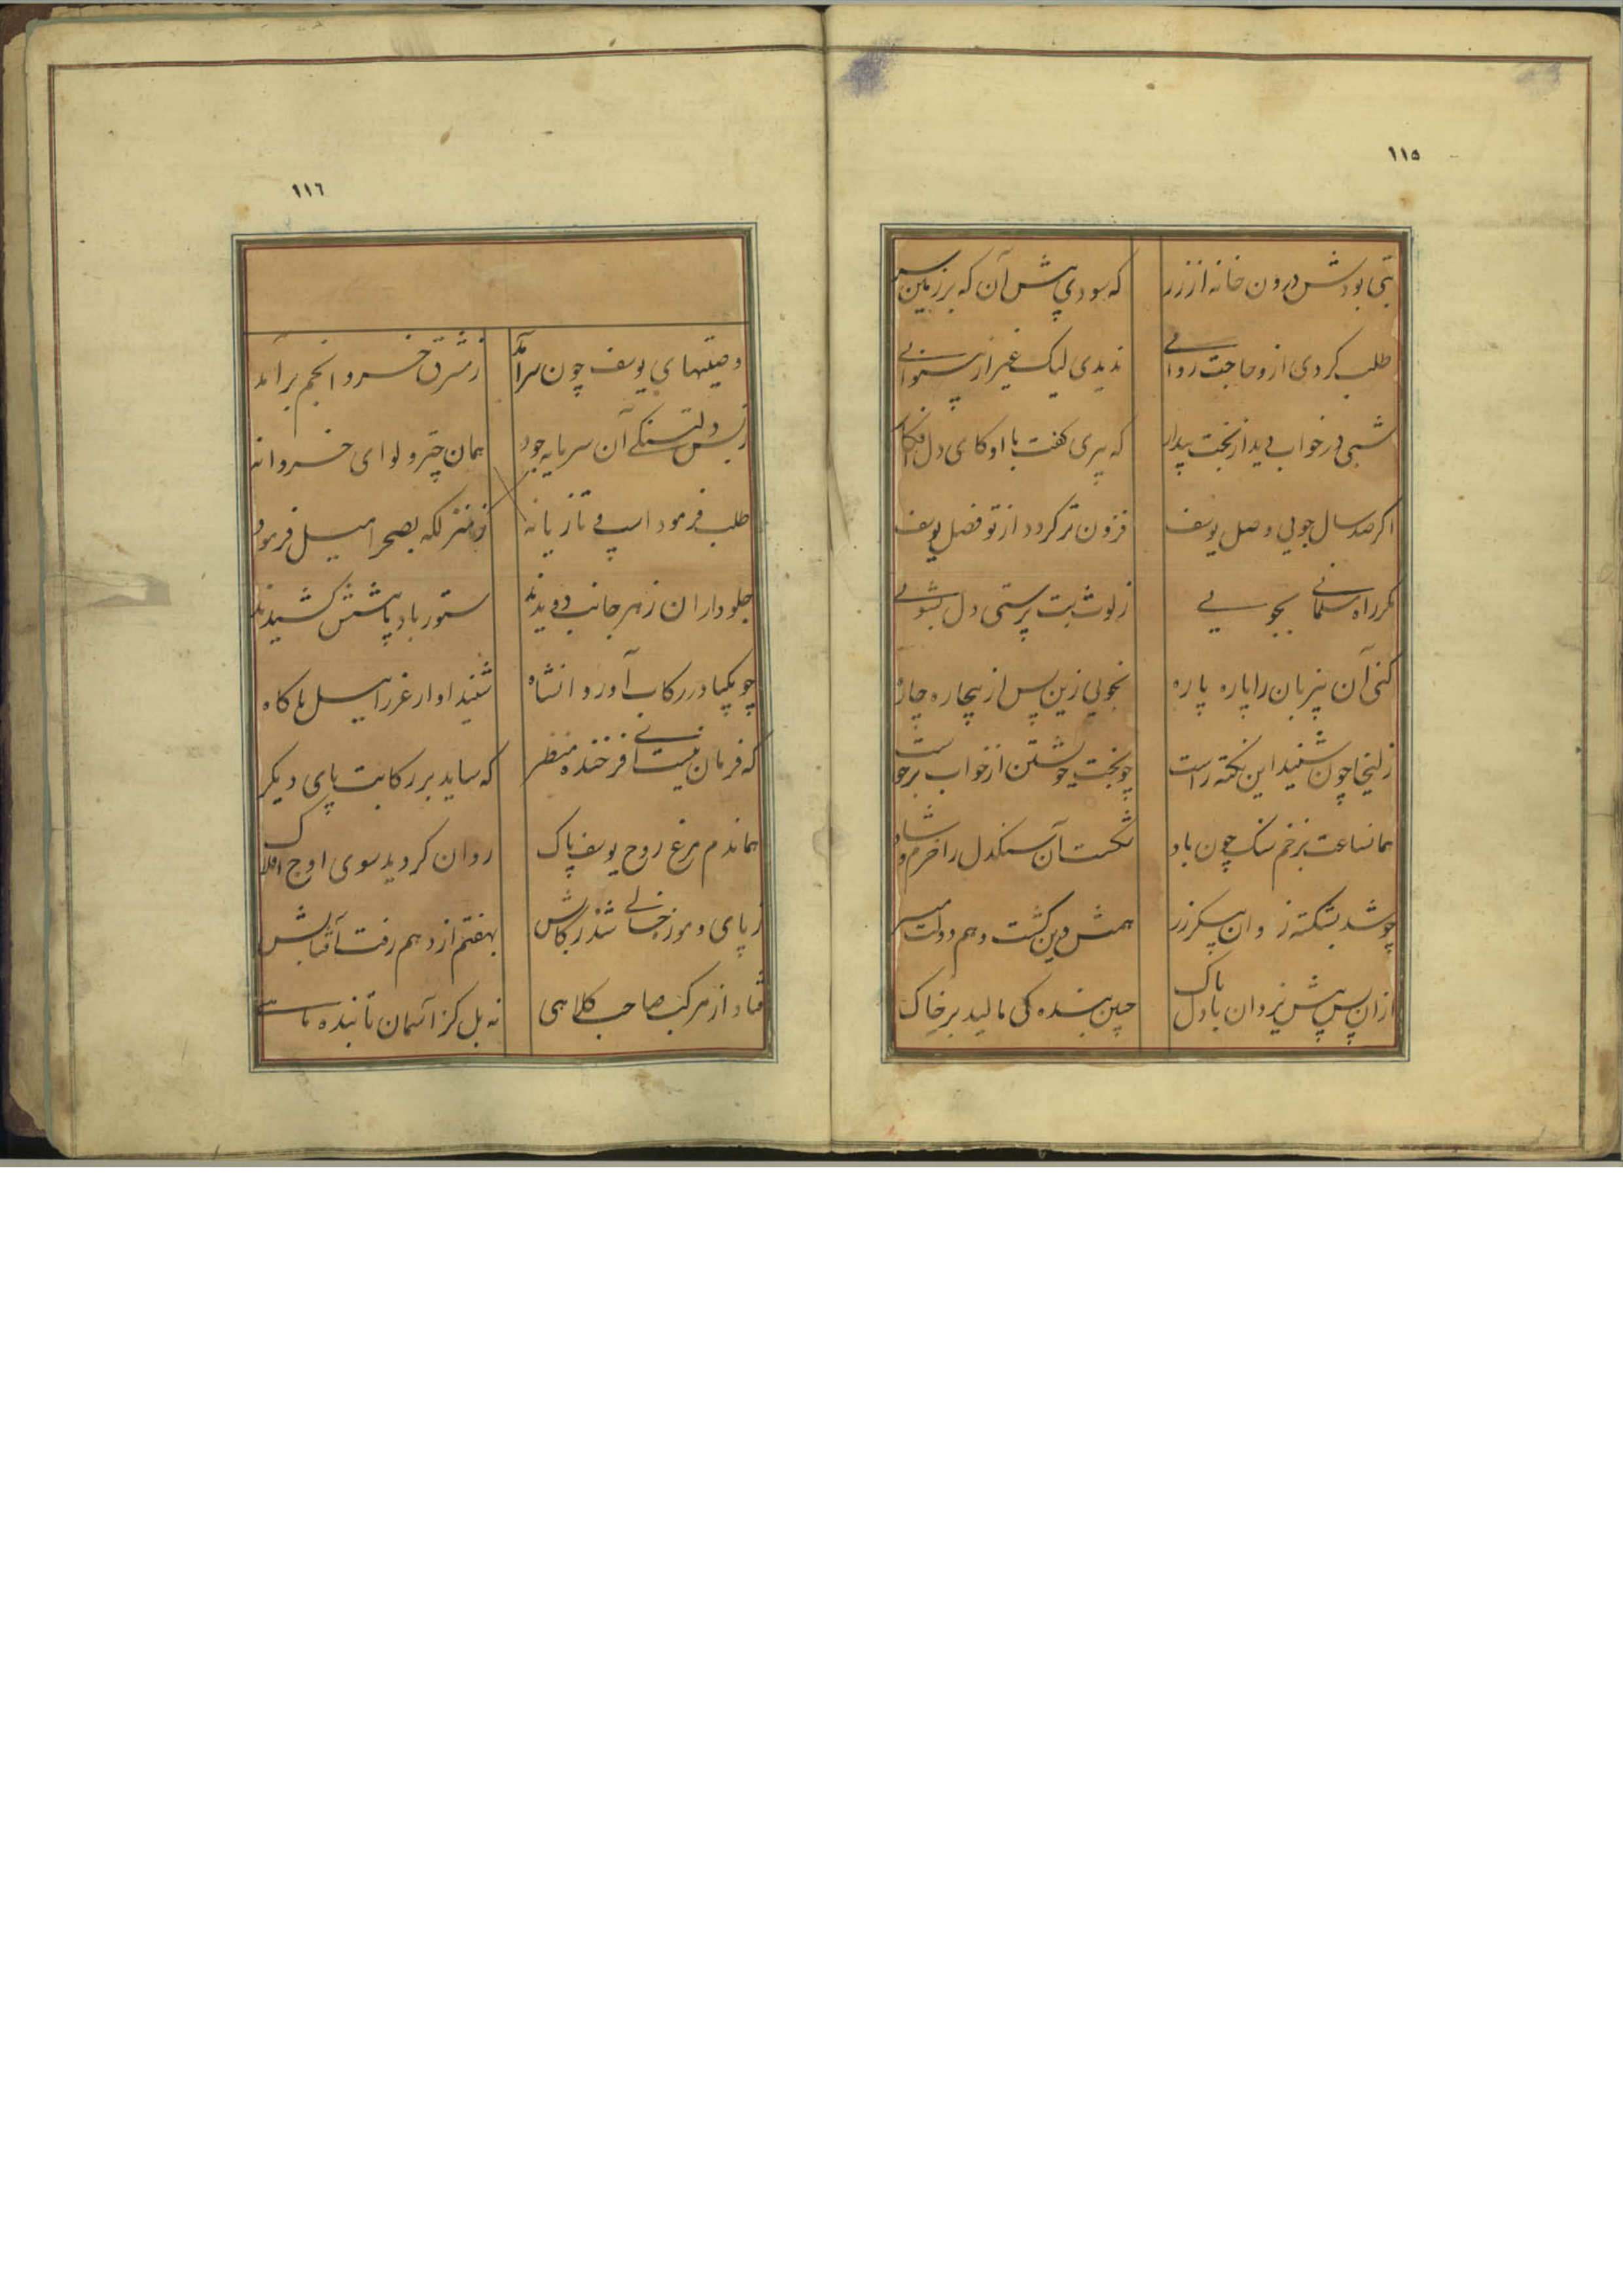 ١١٥
بتی بودش درون خانه از زر
که سودی پیش آن که بر زمین سر
طلب کردی ازو حاجت روائی
ندیدی لیک غیر از بینوائی
شبی در خواب دید از بخت بیدار
که پیری کفت با او کای دل افکار
اکر صد سال جویی وصل یوسف
فزون تر کردد از تو فصل یوسف
مکر راه مسلمانی بجویی
ز لوث بت پرستی دل بشویی
کنی آن را پاره پاره
بجویی زین پس از بیچاره چاره
زلیخا چون شنید این نکته راست
چو بخت خویشتن از خواب برخواست
همانساعت بزخم سنک چون باد
شکست آن سنکدل را خرم و شاد
چو شد بشکسته زو ان پیکر زر
همش دین کشت و هم دولت میسر
ازان پس پیش یزدان با دل پاک
جبین بندکی مالید بر خاک
١١٦
وصیتهای یوسف چون سرآمد
ز مشرق خسرو انجم برآمد
ز بس دلتنکی آن سرمایه جود
همان چتر و لوای خسروانه
طلب فرمود اسپ و تازیانه
ز منزلکه بصحرا میل فرمود
جلوداران ز هر جانب دویدند
ستور باد پا پیشش کشیدند
چو یکپا در رکاب آورد انشاه
شنید اواز عزرائیل ناکاه
که فرمان نیست ای فرخنده منظر
که ساید بر رکابت پای دیکر
هماندم مرغ روح یوسف پاک
روان کردید سوی اوج افلاک
ز پای و موزه خالی شد رکابش
بهفتم از دهم رفت آفتابش
فتاد از مرکب صاحب کلاهی
نه بل کز آسمان تابنده ماهی